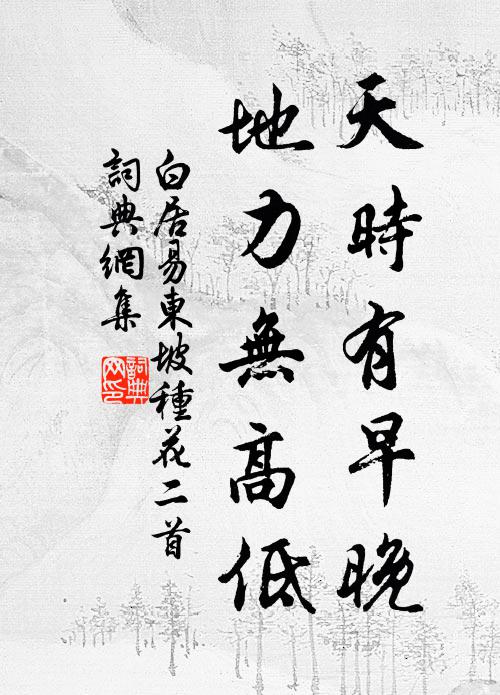 天時有早晚
地力無高低
白居易東坡種花二首
詞典網集
詞典
网印